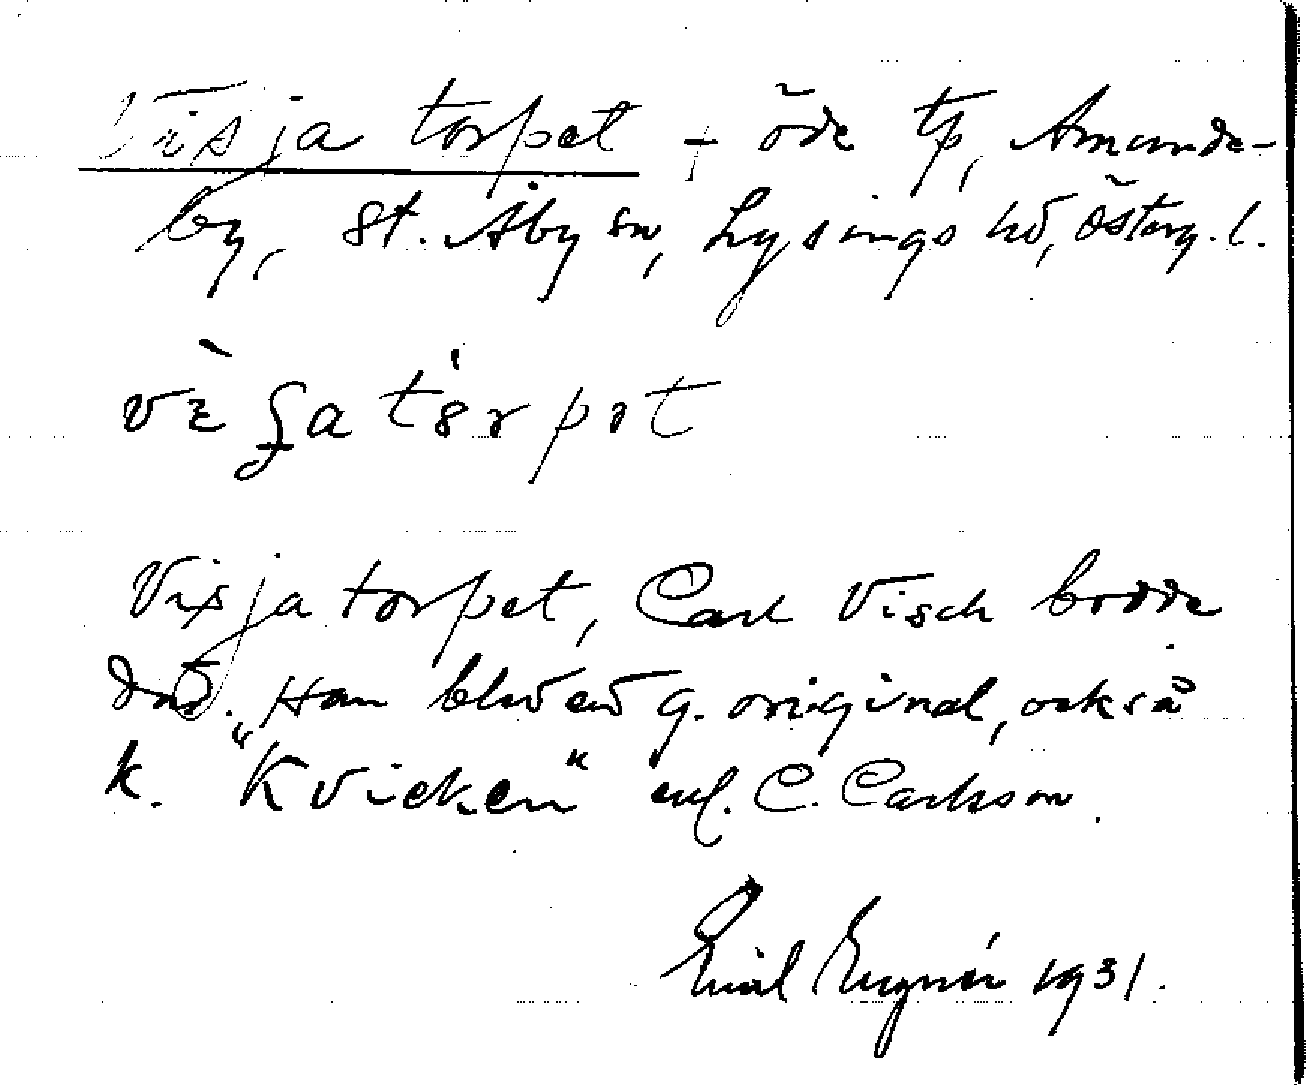 Visja torpet + öde tp, Amunde-
by, St. Åby sn, Lysings hd, Österg. l.
Visja torpet, Carl Visch bodde
där. Han blev en g. original, också
k. "Kvicken" enl. C. Carlson.
Emil 1931.